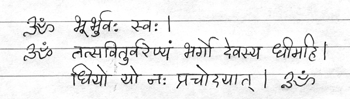 ॐ भूर्भुवः स्वः ।
ॐ तत्सवितुर्वरेण्यं भर्गो देवस्य धीमहि ।
धियो यो नः प्रचोदयात् । ॐ